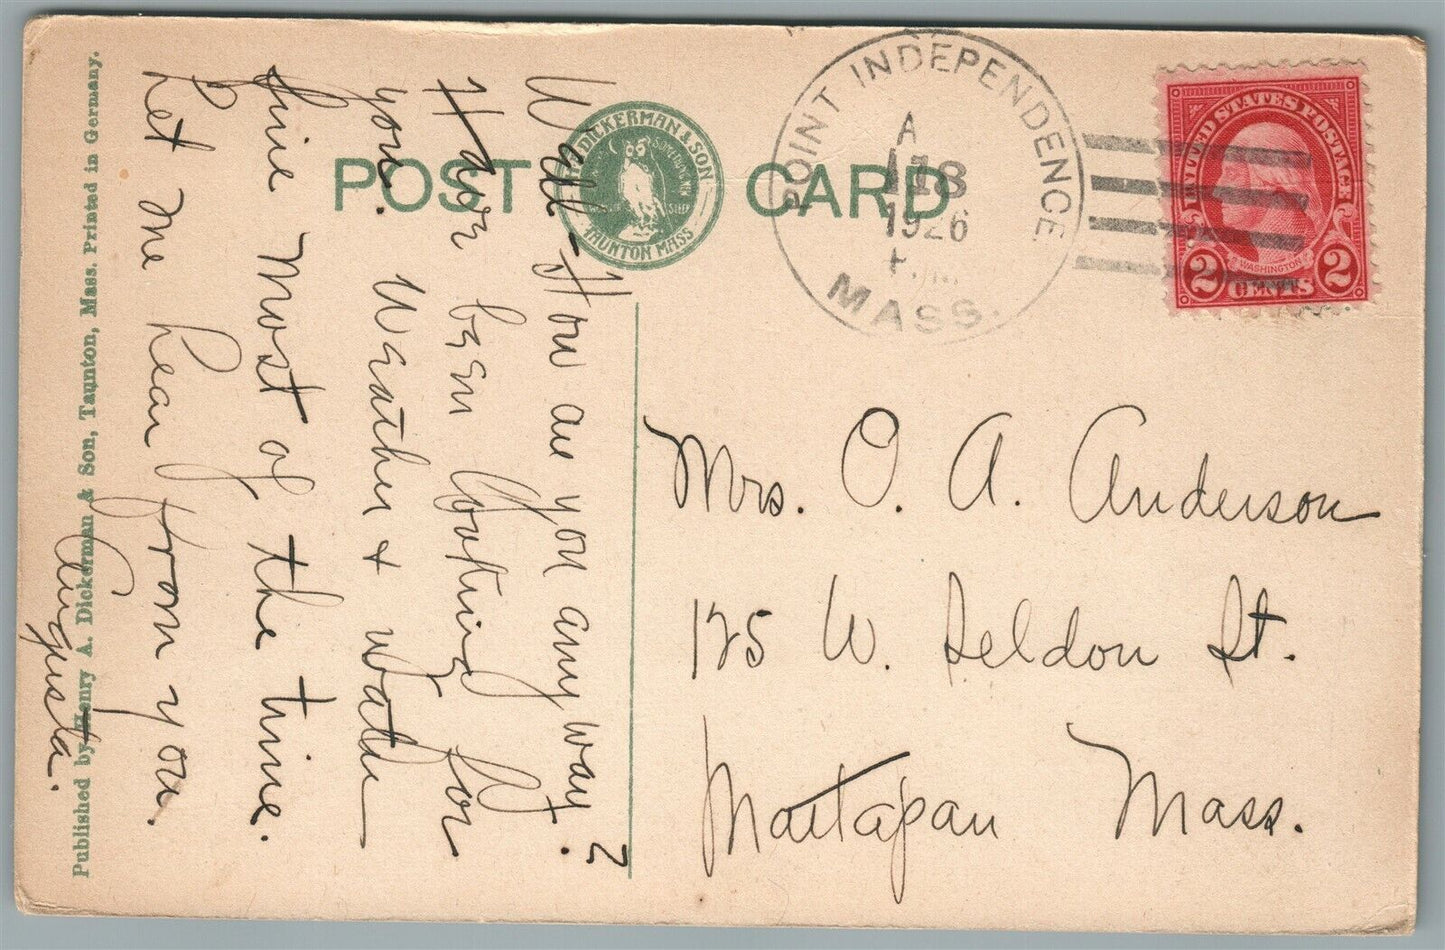 POST CARD
HENRY A. DICKERMAN & SON
TAUNTON MASS
POINT INDEPENDENCE
A
18
1926
MASS.
UNITED STATES POSTAGE
WASHINGTON
2 CENTS 2
Well - How are you any way?
Have been looking for
you. Weather & water
fine most of the time.
Let me hear from you.
Augusta.
Mrs. O. A. Anderson
125 W. Seldon St.
Mattapan Mass.
Published by Henry A. Dickerman & Son, Taunton, Mass. Printed in Germany.